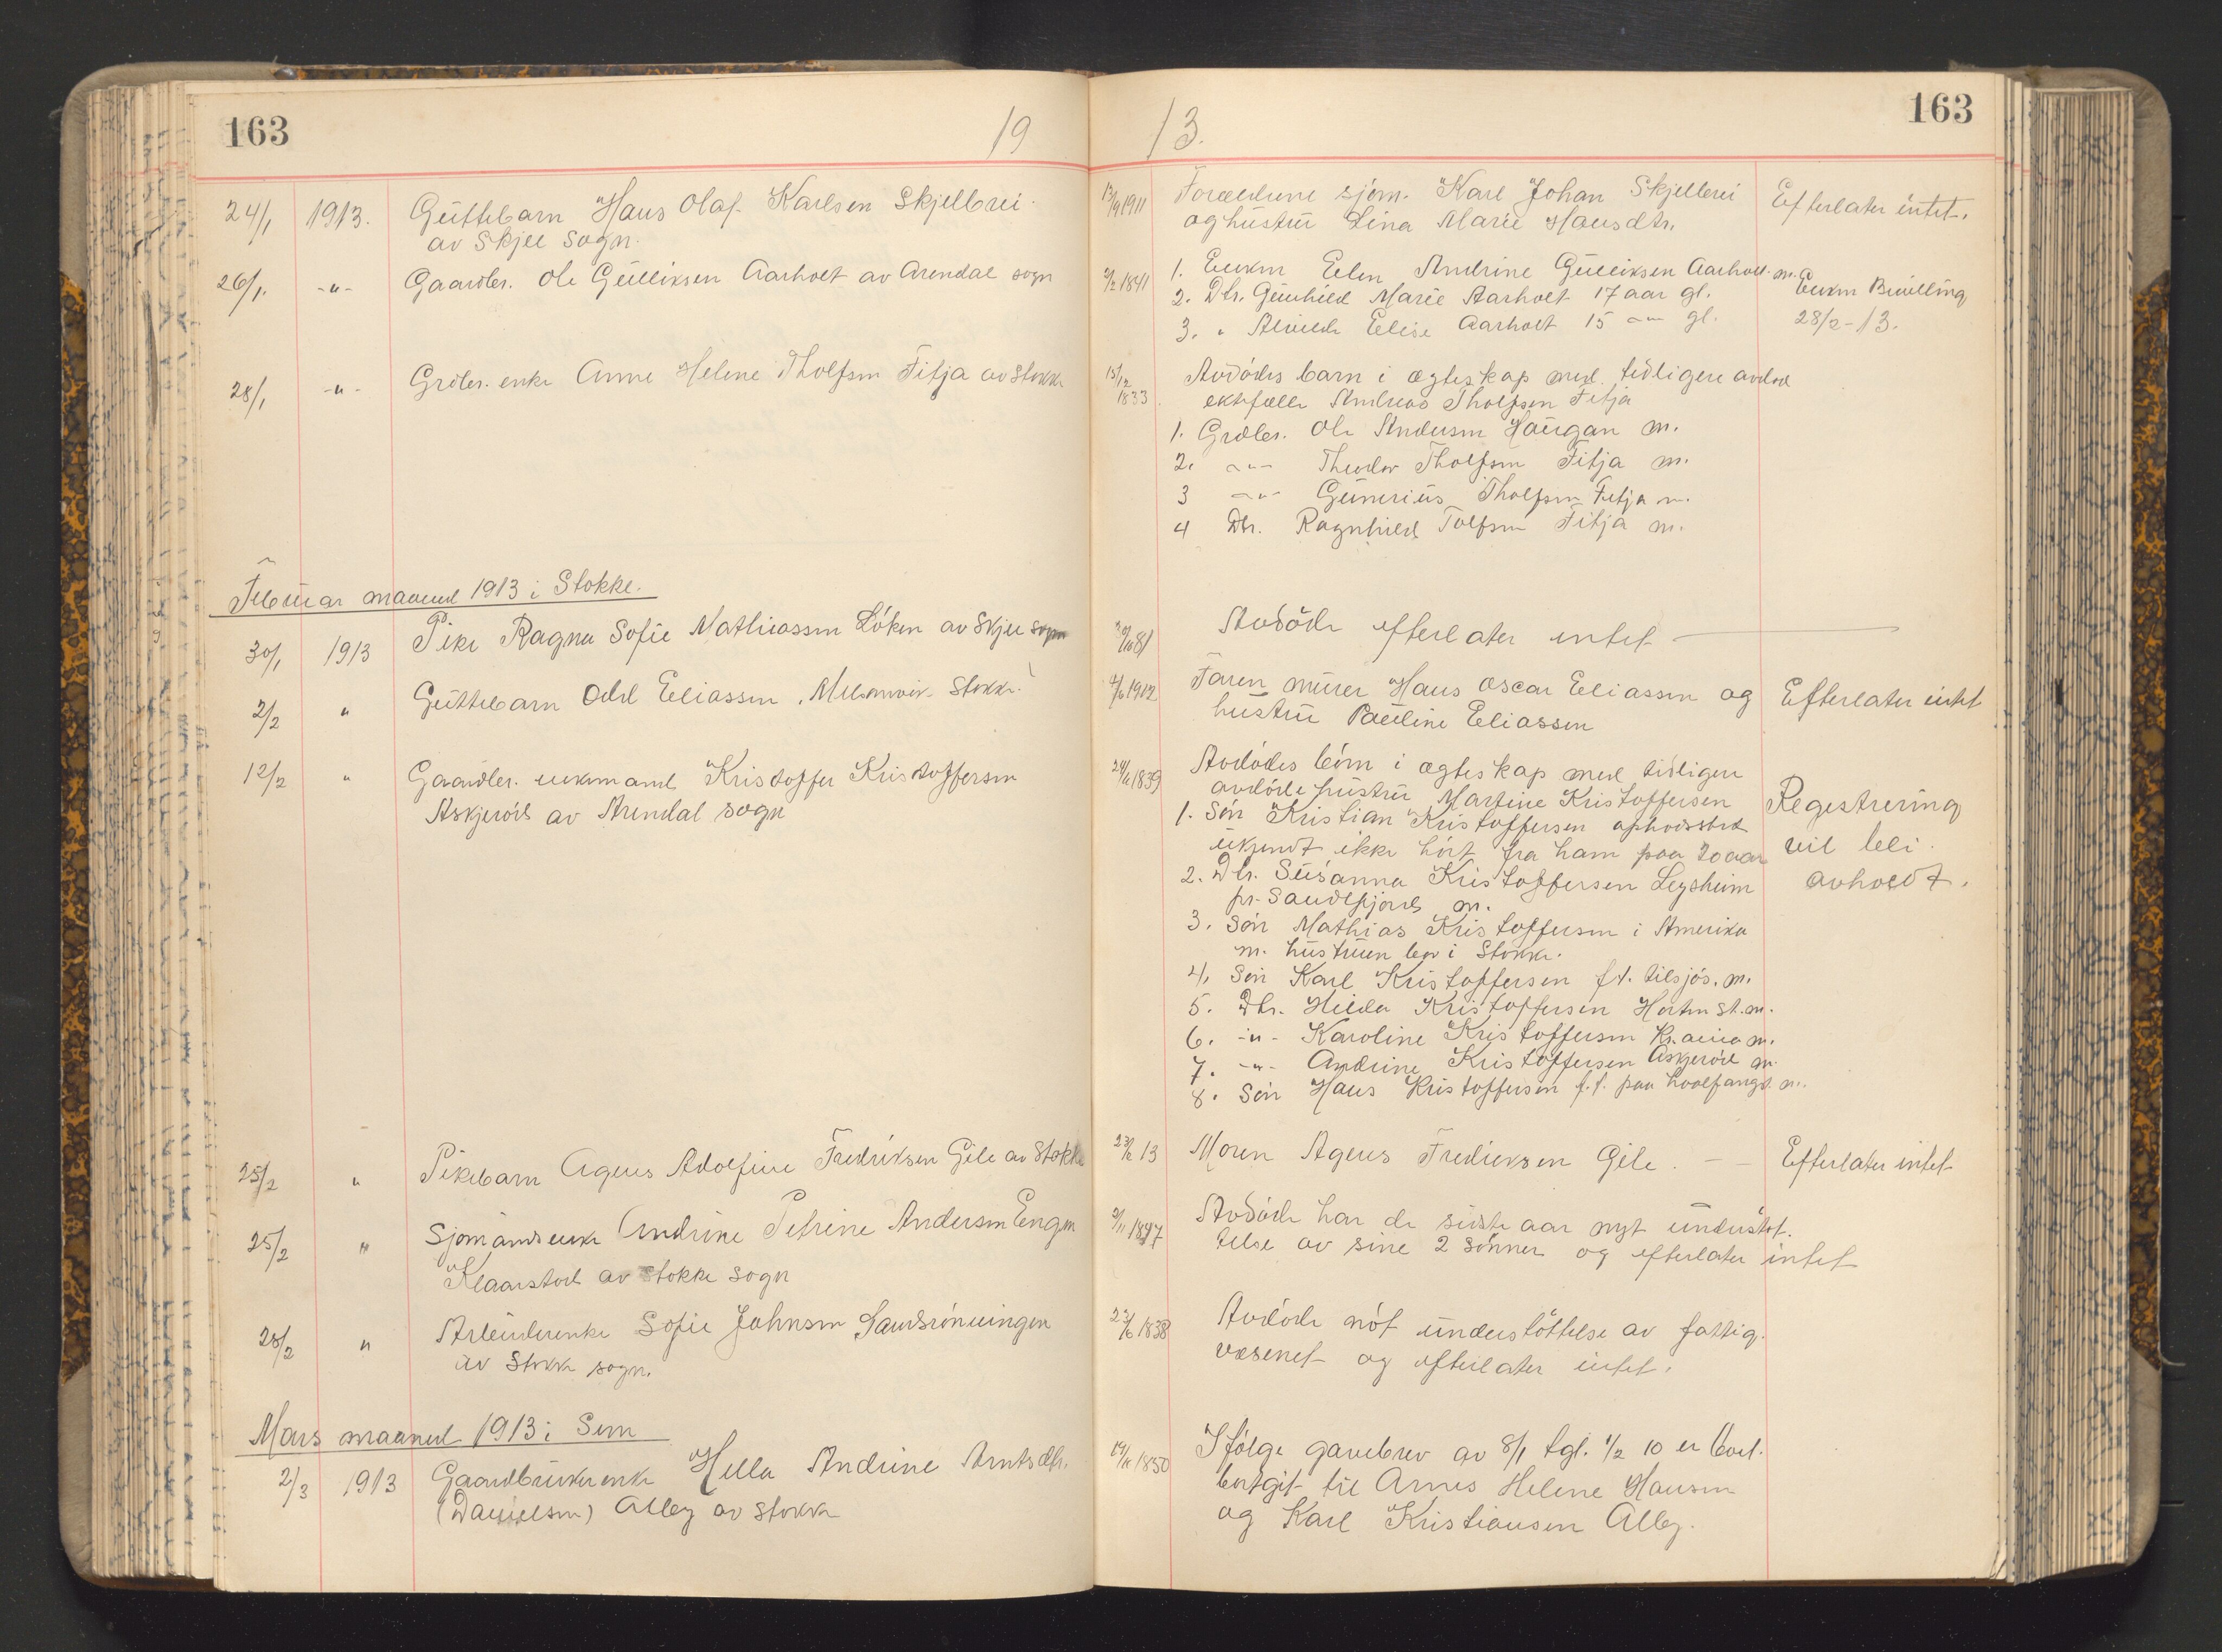 163
19
13.
163
24/1 1913. Guttebarn Hans Olaf Karlsen Skjelbrei
av Skjee sogn.
13/9 1911 Forældrene sjøm. Karl Johan Skjelbrei
og hustru Lina Marie Hansdtr.
Efterlater intet.
26/1. -"- Gaardbr. Ole Gulliksen Aarholt av Arendal sogn
2/2 1841 1. Enken Elen Andrine Gulliksen Aarholt. m.
2. Dtr. Gunhild Marie Aarholt 17 aar gl.
3. " Alvilde Elise Aarholt 15 -"- gl.
Enken Bevilling
28/2-13.
28/1 -"- Grdbr. enke Anne Helene Tholfsen Fitja av Stokke
15/12 1833 Avdødes barn i ægteskap med tidligere avdød
ektefælle Andreas Tholfsen Fitja
1. Grdbr. Ole Andersen Haugan m.
2. -"- Theodor Tholfsen Fitja m.
3 -"- Gunerius Tholfsen Fitja m.
4 Dtr. Ragnhild Tolfsen Fitja m.
Februar maaned 1913 i Stokke.
30/1 1913 Pike Ragna Sofie Mathiassen Løken av Skjee sogn
Avdøde efterlater intet
2/2 " Guttebarn Odd Eliassen, Melsomvik Stokke.
1912 Faren murer Hans Oscar Eliassen og
hustru Pauline Eliassen
Efterlater intet
12/2 " Gaardbr. enkemand Kristoffer Kristoffersen
Askjerød av Arendal sogn
1839 Avdødes børn i ægteskap med tidligere
avdøde hustru Martine Kristoffersen
1. Søn Kristian Kristoffersen opholdssted
ukjendt ikke hørt fra ham paa 20 aar
2. Dtr. Susanna Kristoffersen
pr. Sandefjord m.
3. Søn Mathias Kristoffersen i Amerika
m. hustruen bor i Stokke.
4. Søn Karl Kristoffersen f.t. tilsjøs. m.
5. Dtr. Hilda Kristoffersen Horten st. m.
6. -"- Karoline Kristoffersen Kr.ania m.
7. -"- Andrine Kristoffersen Askjerød m.
8. Søn Hans Kristoffersen f.t. paa hvalfangst m.
Registrering
vil bli
avholdt.
25/2 " Pikebarn Agnes Adolfine Fredriksen Gile av Stokke
23/2 13 Moren Agnes Fredriksen Gile. — Efterlater intet
25/2 " Sjømandsenke Andrine Petrine Andersen Engen
Klaarstad av Stokke sogn
Avdøde har de sidste aar nyt understøt.
telse av sine 2 sønner og efterlater intet
28/2 " Arbeiderenke Sofie Johnsen Sandsrønningen
av Stokke sogn.
23/6 1838 Avdøde nøt understøttelse av fattig.
væsenet og efterlater intet.
Mars maaned 1913 i Sem
2/3 1913 Gaardbrukerenke Hella Andrine Arntsdtr.
(Danielsen) Alby av Stokke
1850 Ifølge gavebrev av 8/1 tgl. 1/2 10 er
bortgit til Arnes Helene Hansen
og Karl Kristiansen Alby.